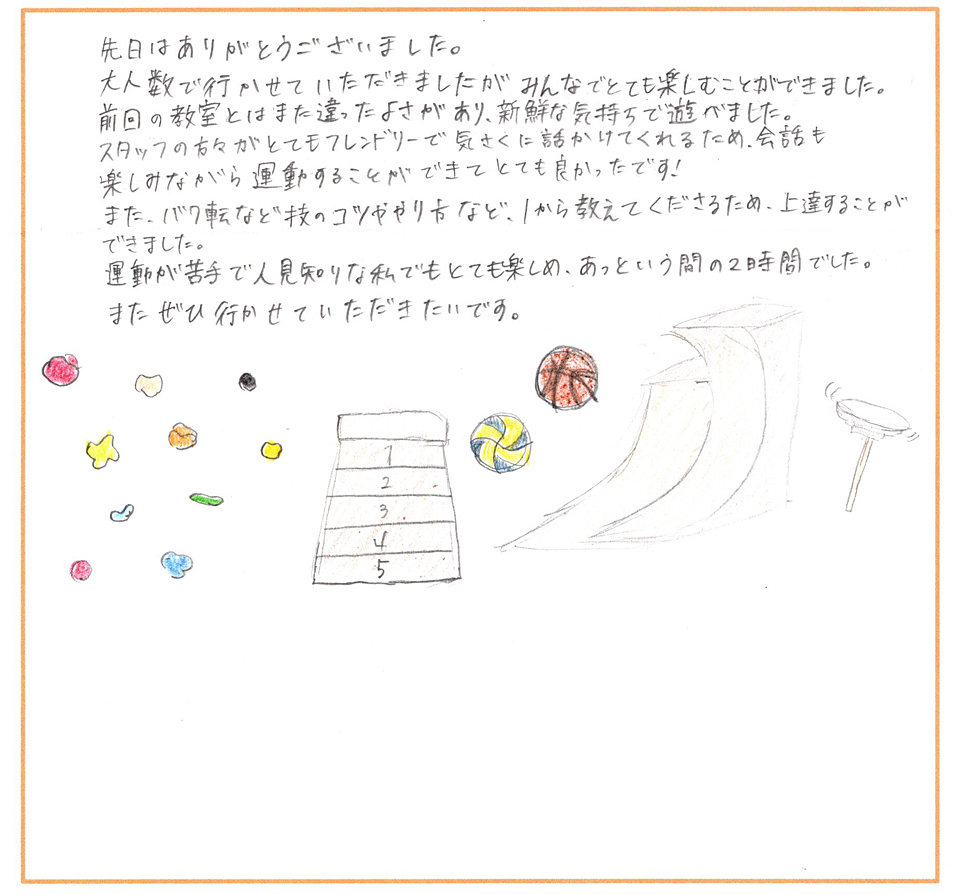 先日はありがとうございました。
大人数で行かせていただきましたが みんなでとても楽しむことができました。
前回の教室とはまた違ったよさがあり、新鮮な気持ちで遊べました。
スタッフの方々がとてもフレンドリーで 気さくに話かけてくれるため、会話も
楽しみながら 運動することができて とても良かったです!
また、バク転など技のコツややり方など、1から教えてくださるため、上達することが
できました。
運動が苦手で人見知りな私でもとても楽しめ、あっという間の2時間でした。
また ぜひ 行かせていただきたいです。
1
2
3
4
5